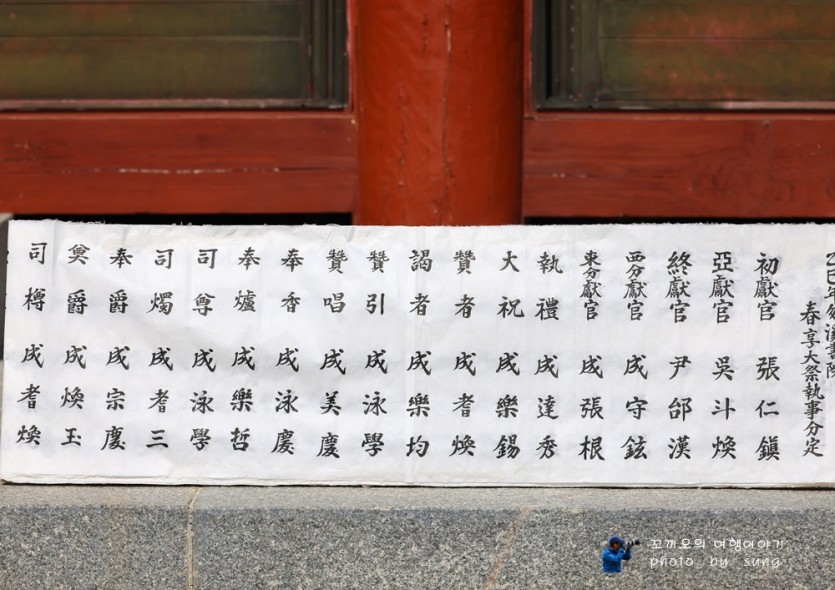 春享大祭執事分定
初獻官 張仁鎭
亞獻官 吳斗煥
終獻官 尹邰漢
西分獻官 成守鉉
東分獻官 成張根
執禮 成達秀
大祝 成樂錫
贊者 成耆煥
謁者 成樂均
贊引 成泳學
贊唱 成美慶
奉香 成泳慶
奉爐 成樂哲
司尊 成泳學
司燭 成耆三
奉爵 成宗慶
奠爵 成煥玉
司樽 成耆煥
꼬끼오의 여행이야기
photo by sung